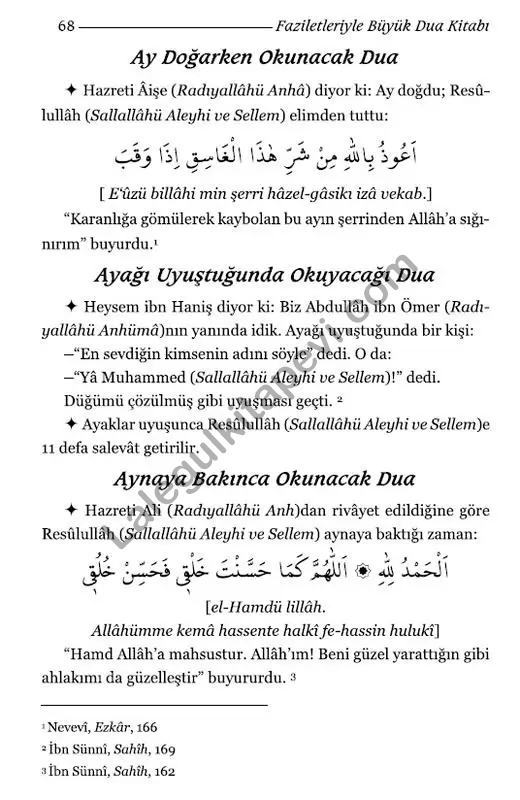 68 Faziletleriyle Büyük Dua Kitabı
Ay Doğarken Okunacak Dua
✦ Hazreti Âişe (Radıyallâhü Anhâ) diyor ki: Ay doğdu; Resû-
lullâh (Sallallâhü Aleyhi ve Sellem) elimden tuttu:
اَعُوذُ بِاللهِ مِنْ شَرِّ هٰذَا الْغَاسِقِ اِذَا وَقَبَ
[ E‘ûzü billâhi min şerri hâzel-gâsikı izâ vekab.]
“Karanlığa gömülerek kaybolan bu ayın şerrinden Allâh’a sığı-
nırım” buyurdu.¹
Ayağı Uyuştuğunda Okuyacağı Dua
✦ Heysem ibn Haniş diyor ki: Biz Abdullâh ibn Ömer (Radı-
yallâhü Anhümâ)nın yanında idik. Ayağı uyuştuğunda bir kişi:
–“En sevdiğin kimsenin adını söyle” dedi. O da:
–“Yâ Muhammed (Sallallâhü Aleyhi ve Sellem)!” dedi.
Düğümü çözülmüş gibi uyuşması geçti. ²
✦ Ayaklar uyuşunca Resûlullâh (Sallallâhü Aleyhi ve Sellem)e
11 defa salevât getirilir.
Aynaya Bakınca Okunacak Dua
✦ Hazreti Ali (Radıyallâhü Anh)dan rivâyet edildiğine göre
Resûlullâh (Sallallâhü Aleyhi ve Sellem) aynaya baktığı zaman:
اَلْحَمْدُ لِلهِ ۞ اَللّٰهُمَّ كَمَا حَسَّنْتَ خَلْقِي فَحَسِّنْ خُلُقِي
[el-Hamdü lillâh.
Allâhümme kemâ hassente halkî fe-hassin hulukî]
“Hamd Allâh’a mahsustur. Allâh’ım! Beni güzel yarattığın gibi
ahlakımı da güzelleştir” buyururdu. ³
¹ Nevevî, Ezkâr, 166
² İbn Sünnî, Sahîh, 169
³ İbn Sünnî, Sahîh, 162
Lalegulkitapevi.com